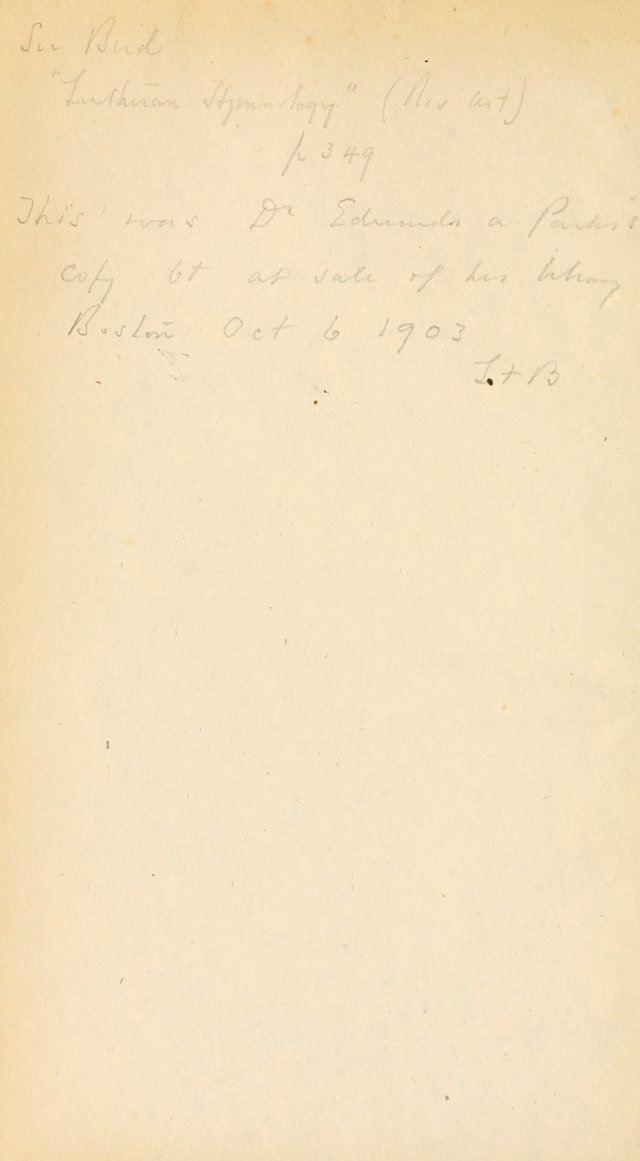 See Bird
"Lutheran Hymnology" (Rev Art)
p 349
This was Dr Edwards a Park's
copy bt at sale of his library
Boston Oct 6 1903
L F B